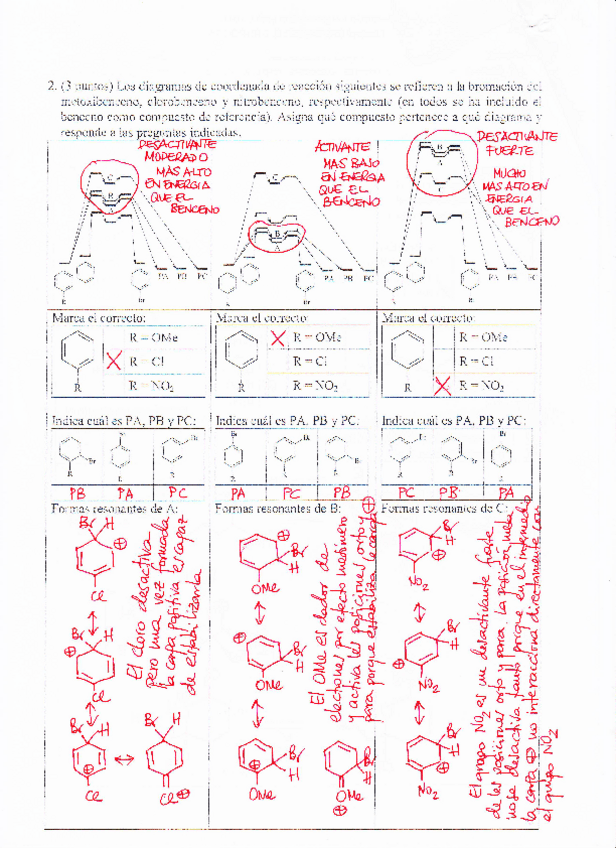 2. (3 puntos) Los diagramas de coordenada de reacción siguientes se refieren a la bromación del
metoxibenceno, clorobenceno y nitrobenceno, respectivamente (en todos se ha incluido el
benceno como compuesto de referencia). Asigna qué compuesto pertenece a qué diagrama y
responde a las preguntas indicadas.
DESACTIVANTE
MODERADO
MAS ALTO
EN ENERGIA
QUE EL
BENCENO
C
B
A
PA PB PC
R
Br
ACTIVANTE!
MAS BAJO
EN ENERGIA
QUE EL
BENCENO
C
B
A
PA PB PC
R
Br
DESACTIVANTE
FUERTE
MUCHO
MAS ALTO EN
ENERGIA
QUE EL
BENCENO
B
A
C
PA PB PC
R
Br
Marca el correcto:
R = OMe
X R = Cl
R = NO2
R
Marca el correcto:
X R = OMe
R = Cl
R = NO2
R
Marca el correcto:
R = OMe
R = Cl
X R = NO2
R
Indica cuál es PA, PB y PC:
PB PA PC
Indica cuál es PA, PB y PC:
PA PC PB
Indica cuál es PA, PB y PC:
PC PB PA
Formas resonantes de A:
Br H
⊕
Cl
Br H
⊕
Cl
Br H
⊕
Cl
Br H
Cl⊕
El cloro desactiva
pero una vez formada
la carga positiva es capaz
de estabilizarla
Formas resonantes de B:
⊕
Br
H
OMe
⊕
Br
H
OMe
⊕
Br
H
OMe
Br
H
OMe
⊕
El OMe es dador de
electrones por efecto mesómero
y activa las posiciones orto y
para porque estabiliza la carga ⊕
Formas resonantes de C:
⊕
Br
H
NO2
⊕
Br
H
NO2
⊕
Br
H
NO2
El grupo NO2 es un desactivante fuerte
de las posiciones orto y para. La posición meta
no se desactiva tanto porque en el intermedio
la carga ⊕ no interacciona directamente con
el grupo NO2